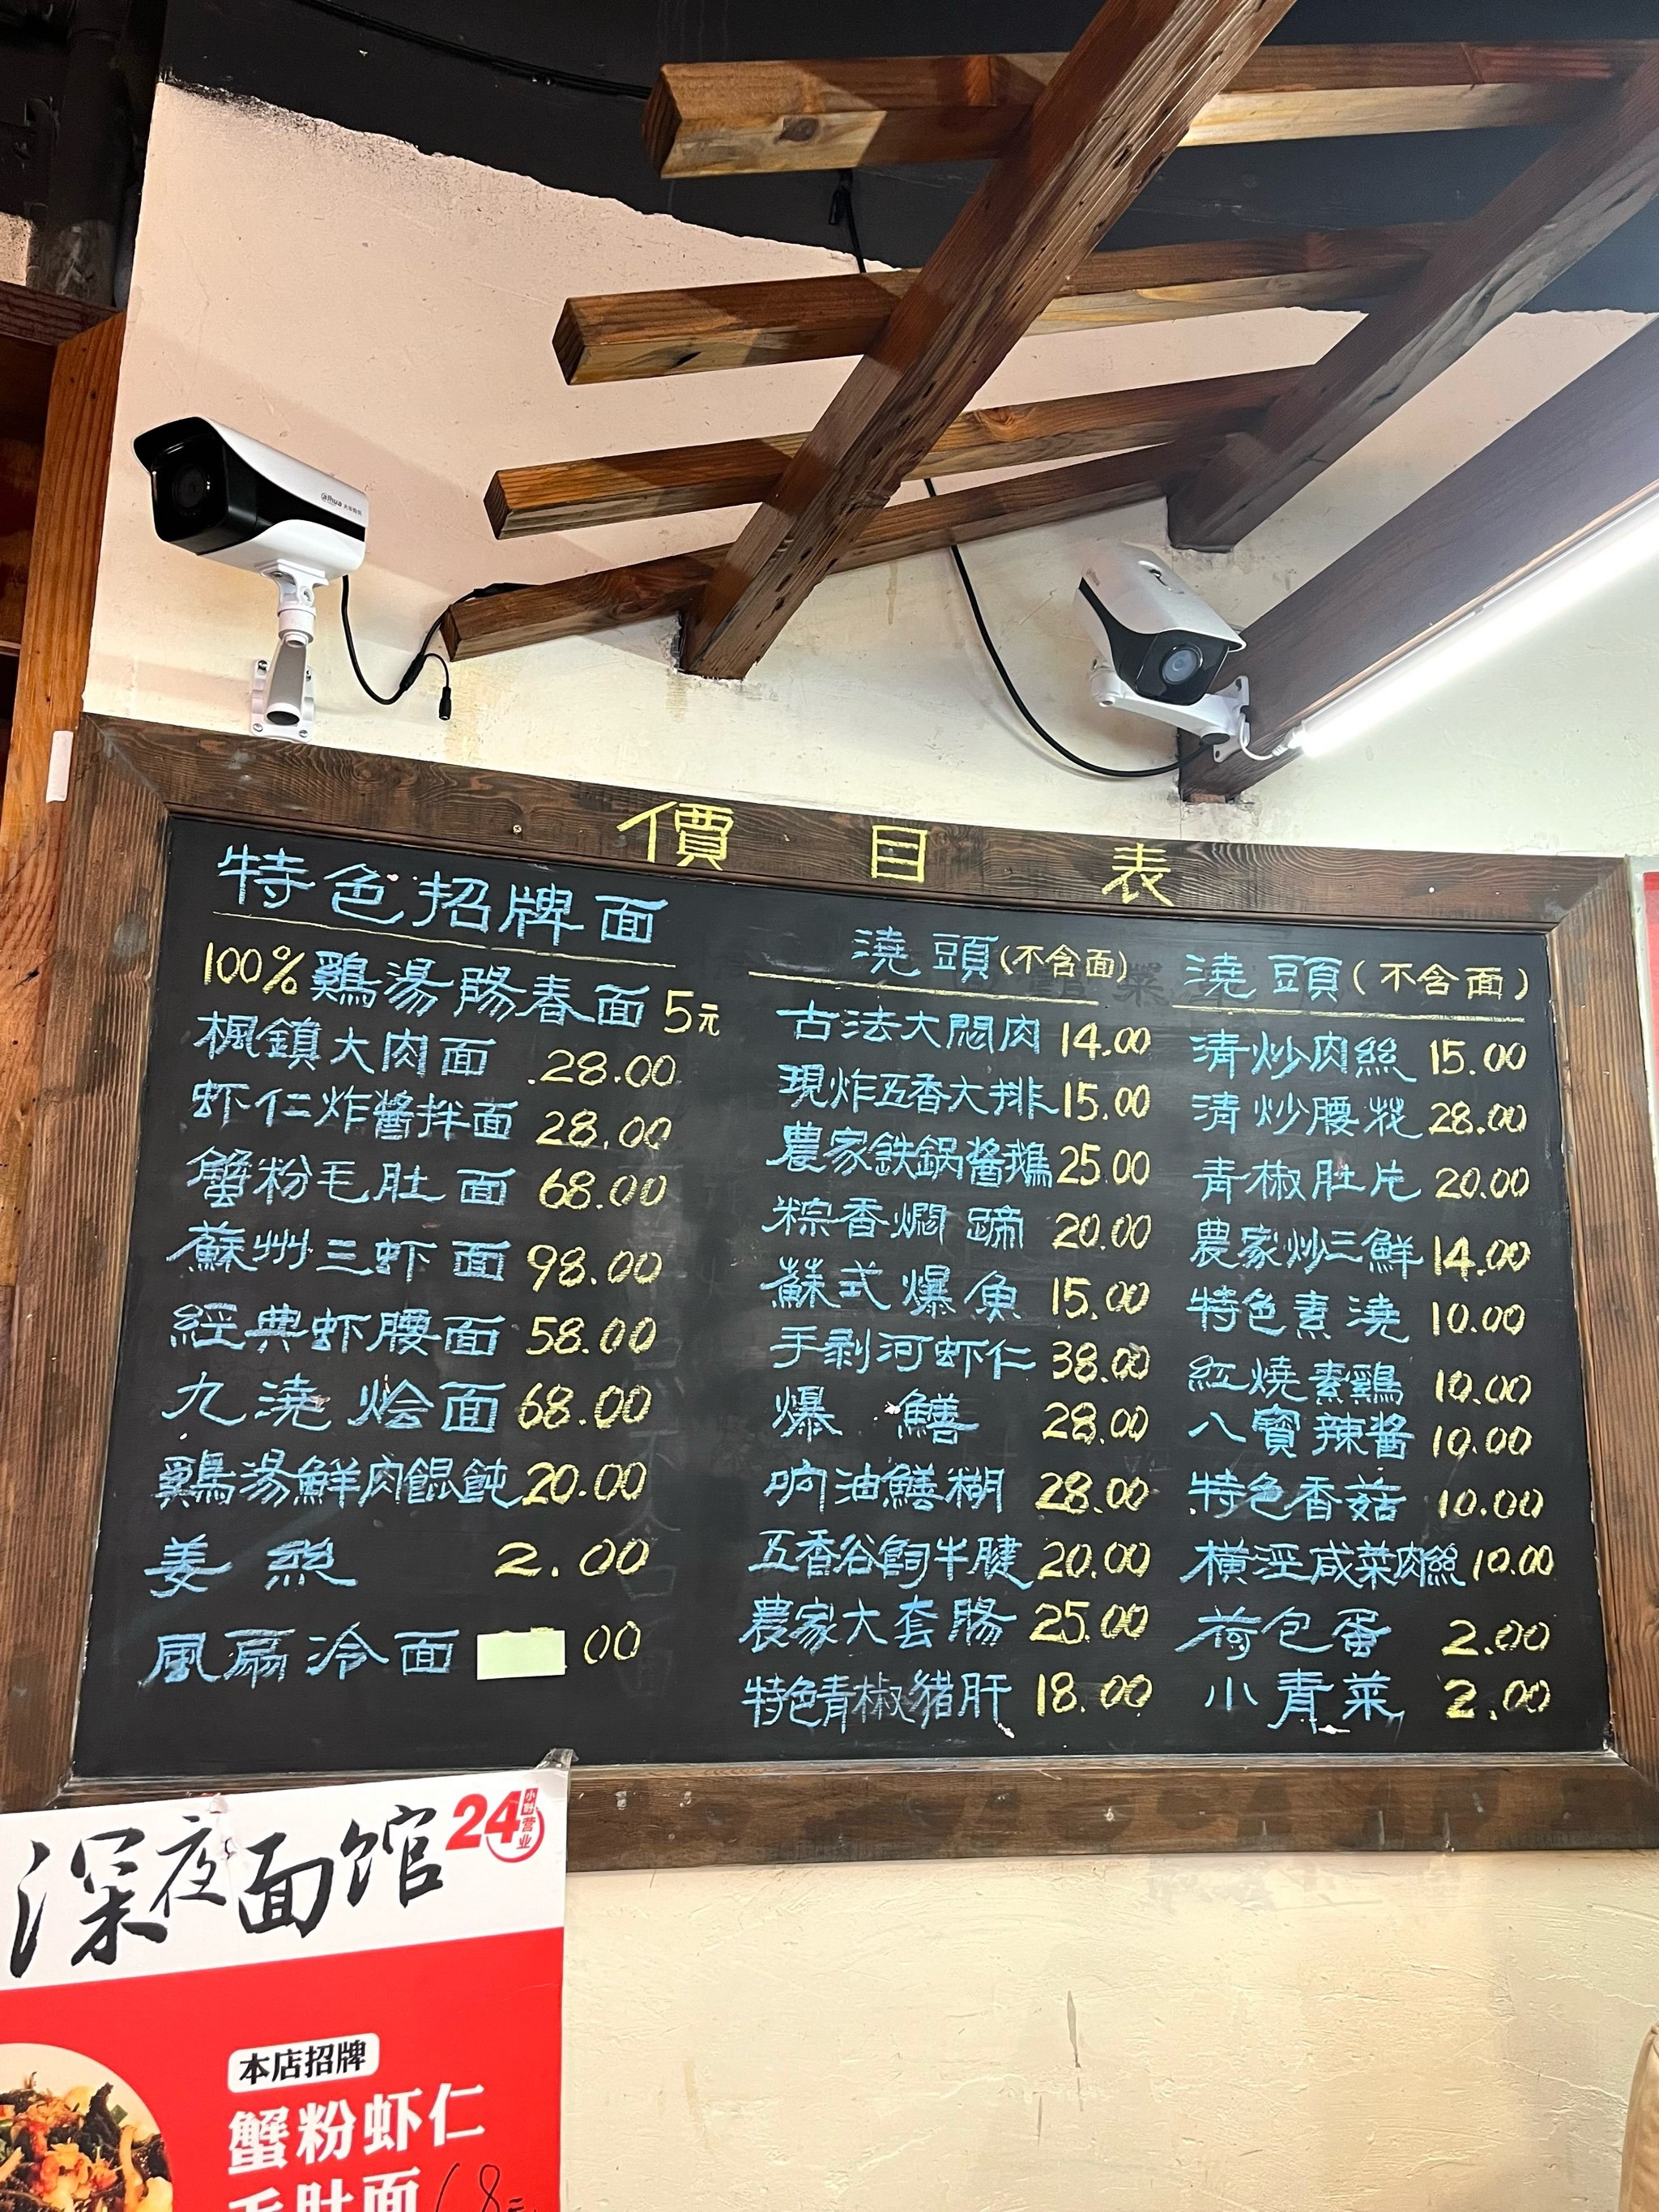 alhua
價 目 表
特色招牌面
100%鷄湯腸春面 5元
楓鎮大肉面 28.00
虾仁炸醬拌面 28.00
蟹粉毛肚面 68.00
蘇州三虾面 98.00
經典虾腰面 58.00
九澆烩面 68.00
鷄湯鮮肉餛飩 20.00
姜絲 2.00
風扇冷面 00
澆頭(不含面)
古法大悶肉 14.00
現炸五香大排 15.00
農家鉄鍋醬鵝 25.00
粽香燜蹄 20.00
蘇式爆魚 15.00
手剥河虾仁 38.00
爆鱔 28.00
响油鱔糊 28.00
五香谷飼牛腱 20.00
農家大套腸 25.00
特色青椒豬肝 18.00
澆頭(不含面)
清炒肉絲 15.00
清炒腰花 28.00
青椒肚片 20.00
農家炒三鮮 14.00
特色素澆 10.00
紅燒素鷄 10.00
八寶辣醬 10.00
特色香菇 10.00
橫涇咸菜肉絲 10.00
荷包蛋 2.00
小青菜 2.00
深夜面馆
24小時营业
本店招牌
蟹粉虾仁
毛肚面 68元